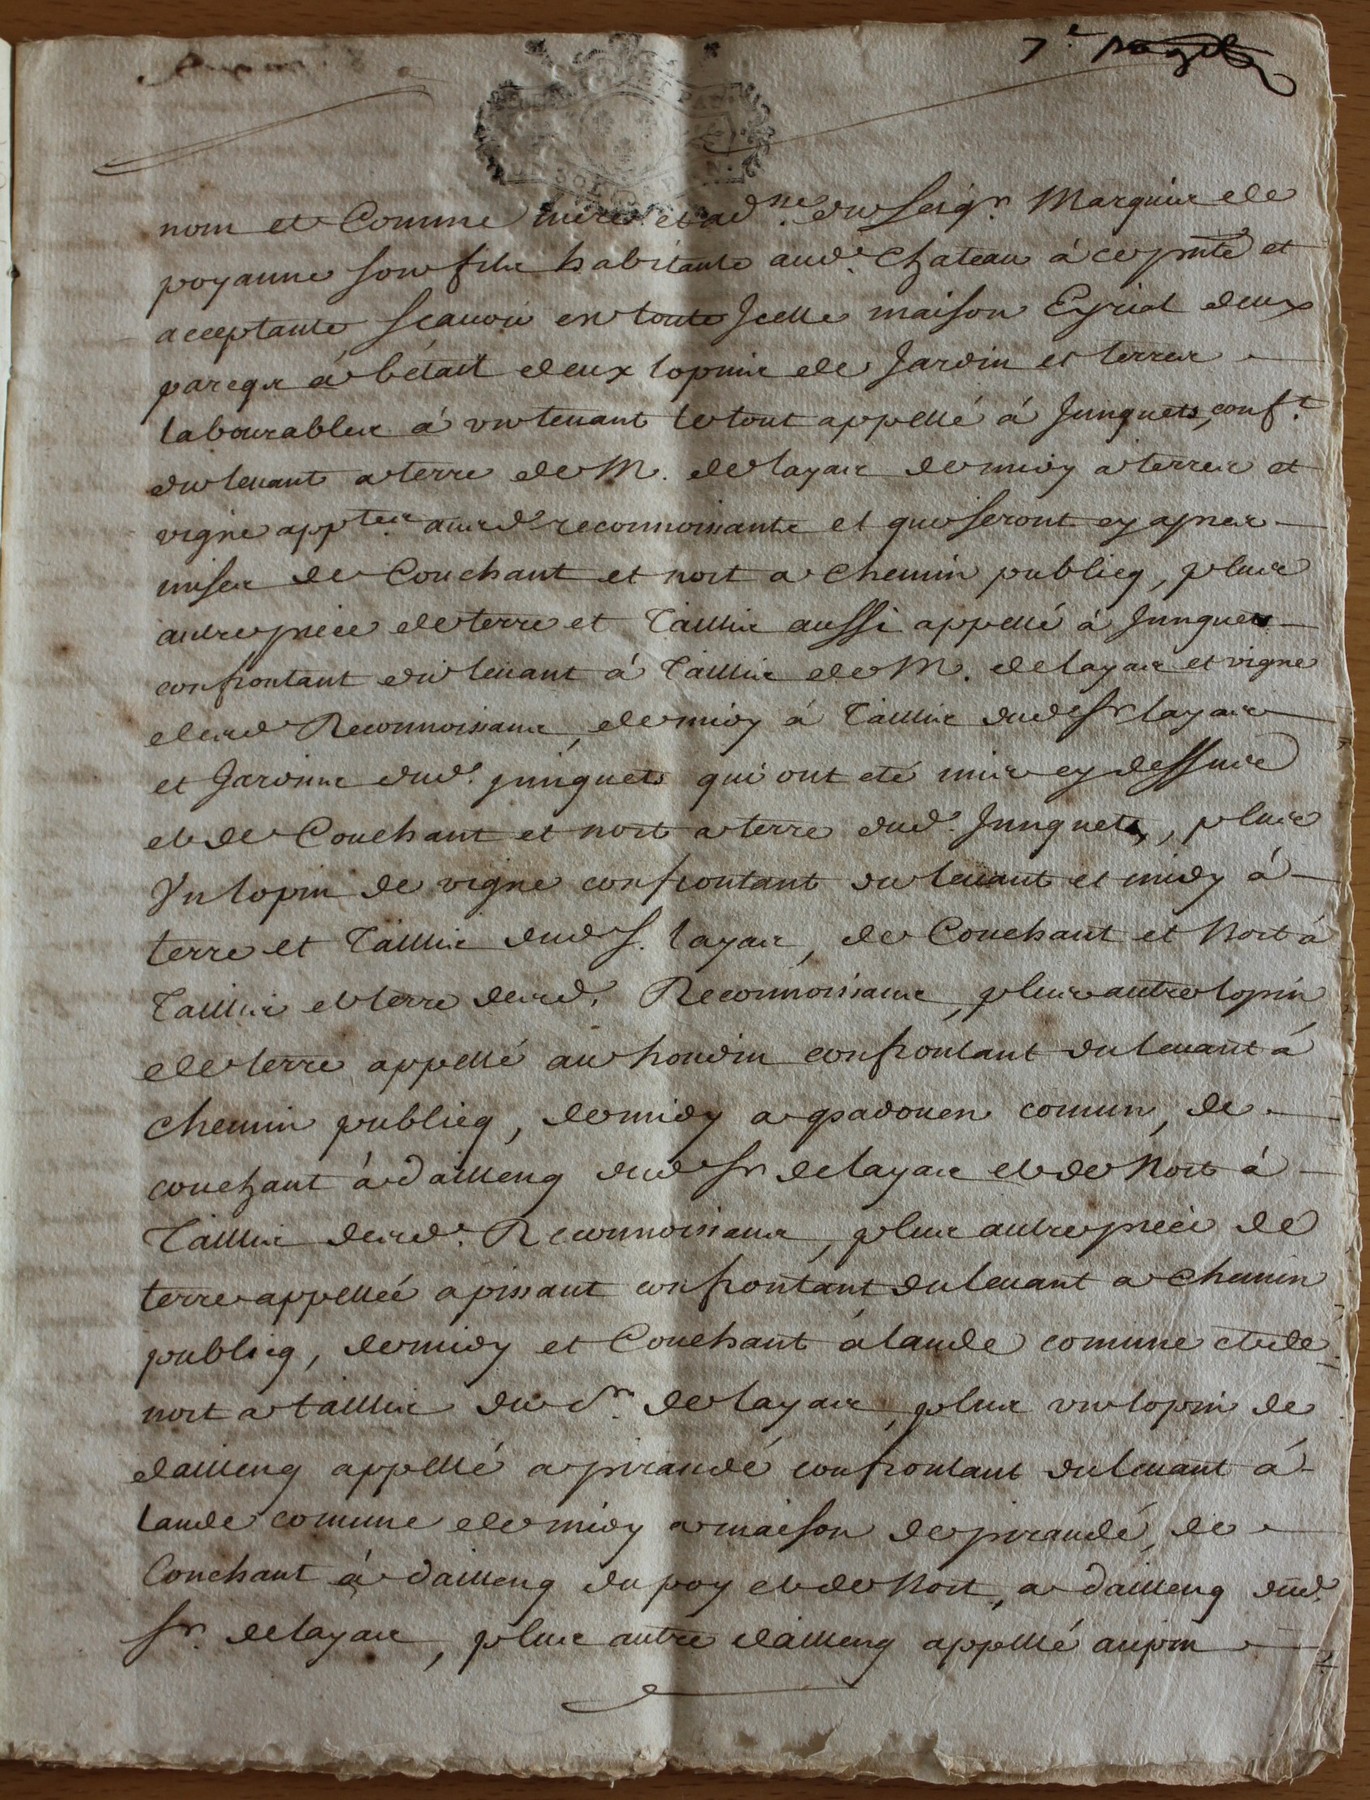 7e page
nom et Comme mere et ad.ne du seigr. Marquis de
poyanne son fils habitante aud. Chateau à ce pnte et
acceptante scauoir en toute Jcelle maison Eyrial deux
parcqs à bétail deux lopins de Jardin et terres
labourables à un tenant le tout appellé à Junquets, conft.
du leuant a terre de M. de layas de midy a terres et
vigne appten. ausd. reconnoissants et qui seront cy apres
mises de Couchant et nort a chemin publicq, plus
autre piece de terre et Taillis aussi appellé à Junquets
confrontant du leuant à Taillis de M. de layas et vigne
desd Reconnoissans, de midy à Taillis dud sr layas
et Jardins dud. junquets qui ont eté mis cy dessus
et de Couchant et nort a terre dud. Junquets, plus
Un lopin de vigne confrontant du leuant et midy à
terre et Taillis dud s. layas, de Couchant et Nort à
Taillis et terre desd. Reconnoissans, plus autre lopin
de terre appellé au houdin confrontant du leuant à
chemin publicq, de midy a padouen comun, de
couchant à dailleng dud sr de layas et de Nort à
Taillis desd. Reconnoissans, plus autre piéce de
terre appellée a pissant confrontant du leuant a chemin
publicq, de midy et Couchant à lande comune et de
nort a taillis du sr. de layas, plus un lopin de
dailleng appellé a pirandé confrontant du leuant à
lande comune de midy a maison de pirandé, de
Couchant à dailleng du poy et de Nort, a dailleng dud.
sr. de layas, plus autre dailleng appellé au pin